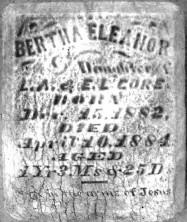 BERTHA ELEANOR
Daughter of
L.A. & E.L. CORE
BORN
Dec. 15, 1882,
DIED
April 10, 1884
AGED
1 Yr 3 Ms & 25 D
Safe in the arms of Jesus